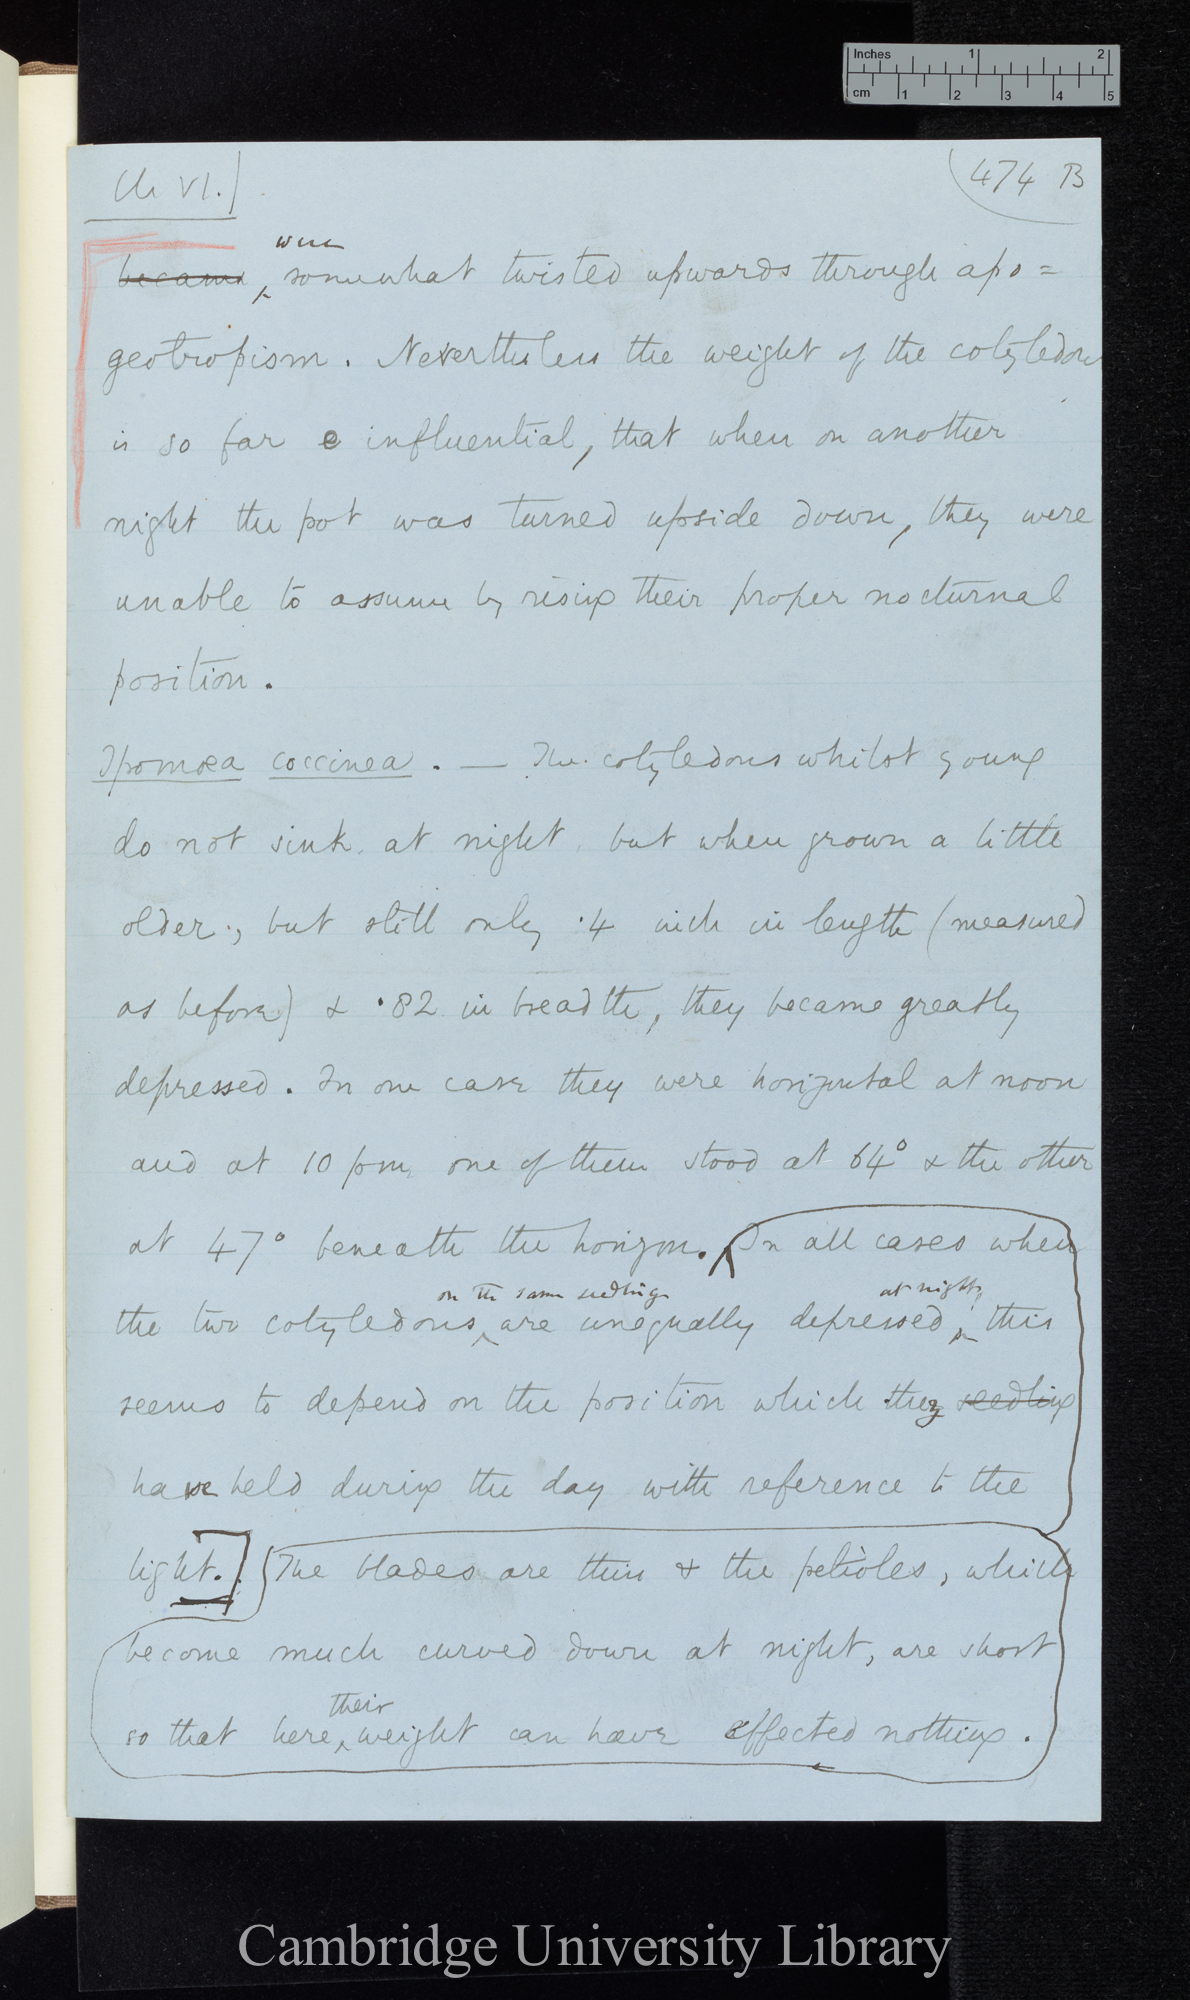 Inches 1 2
cm 1 2 3 4 5
Ch VI.)
474 B
were
became, somewhat twisted upwards through apo=
geotropism. Nevertheless the weight of the cotyledons
is so far e influential, that when on another
night the pot was turned upside down, they were
unable to assume by rising their proper nocturnal
position.
Ipomœa coccinea. — The cotyledons whilst young
do not sink at night, but when grown a little
older, but still only .4 inch in length (measured
as before) & .82 in breadth, they became greatly
depressed. In one case they were horizontal at noon
and at 10 pm, one of them stood at 64° & the other
at 47° beneath the horizon. In all cases when
on the same seedling at night,
the two cotyledons are unequally depressed, this
seems to depend on the position which they seedling
have held during the day with reference to the
light.] The blades are thin & the petioles, which
become much curved down at night, are short
their
so that here, weight can have effected nothing.
Cambridge University Library